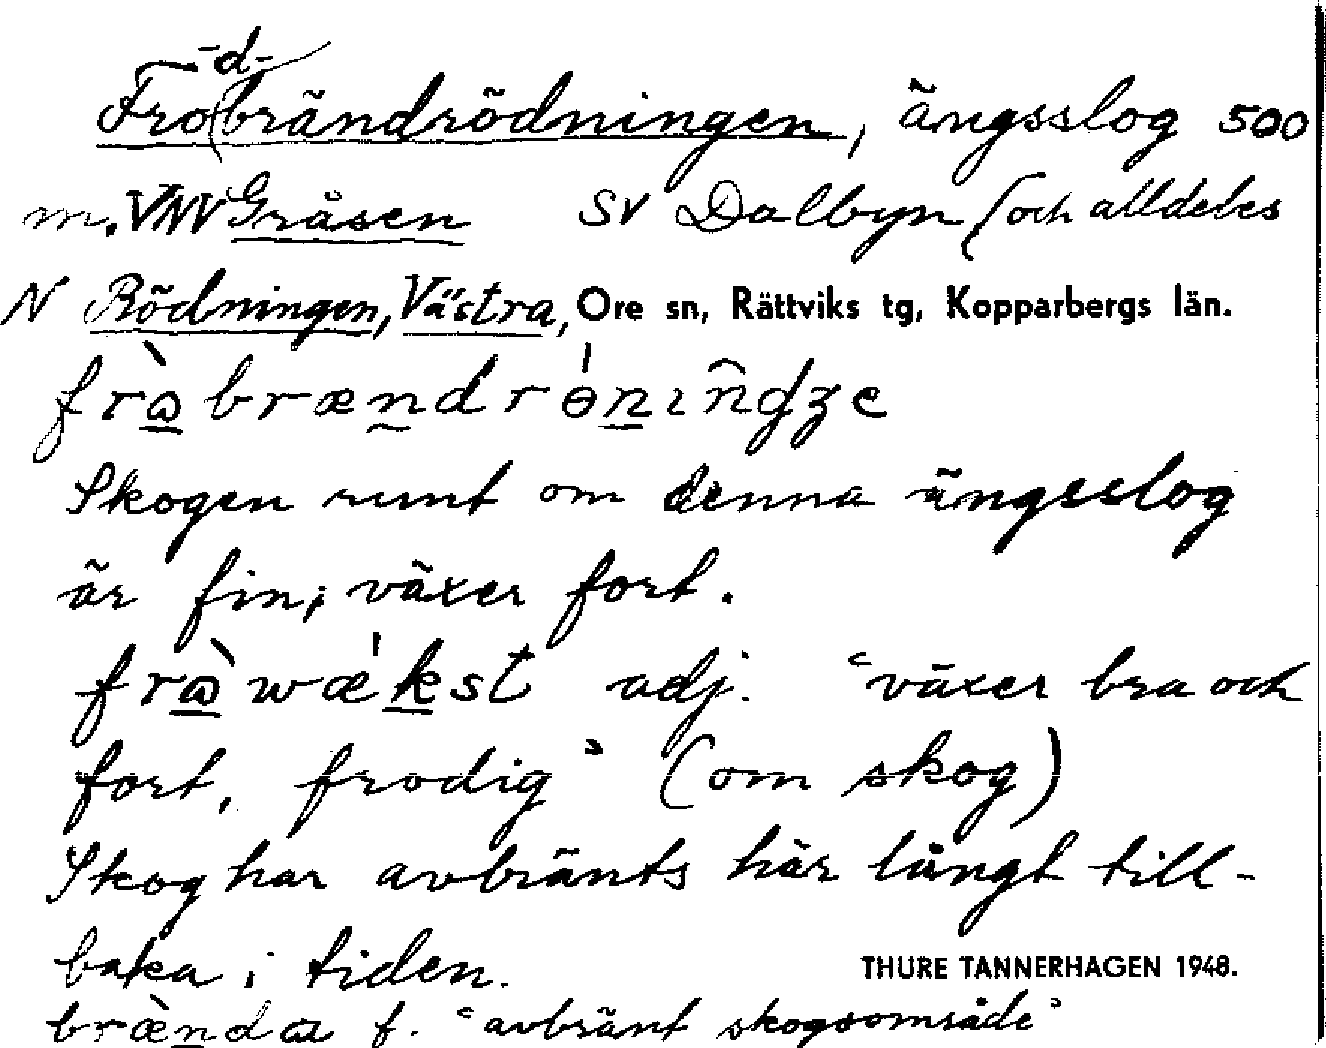 -d-
Fro(brändrödningen, ängsslog 500
m. VNV Gråsen SV Dalbyn (och alldeles
N Rödningen, Västra, Ore sn, Rättviks tg, Kopparbergs län.
Skogen runt om denna ängsslog
är fin; växer fort.
adj. "växer bra och
fort, frodig" (om skog)
Skog har avbränts här långt till-
baka i tiden.
THURE TANNERHAGEN 1948.
brænda f. "avbränt skogsområde"